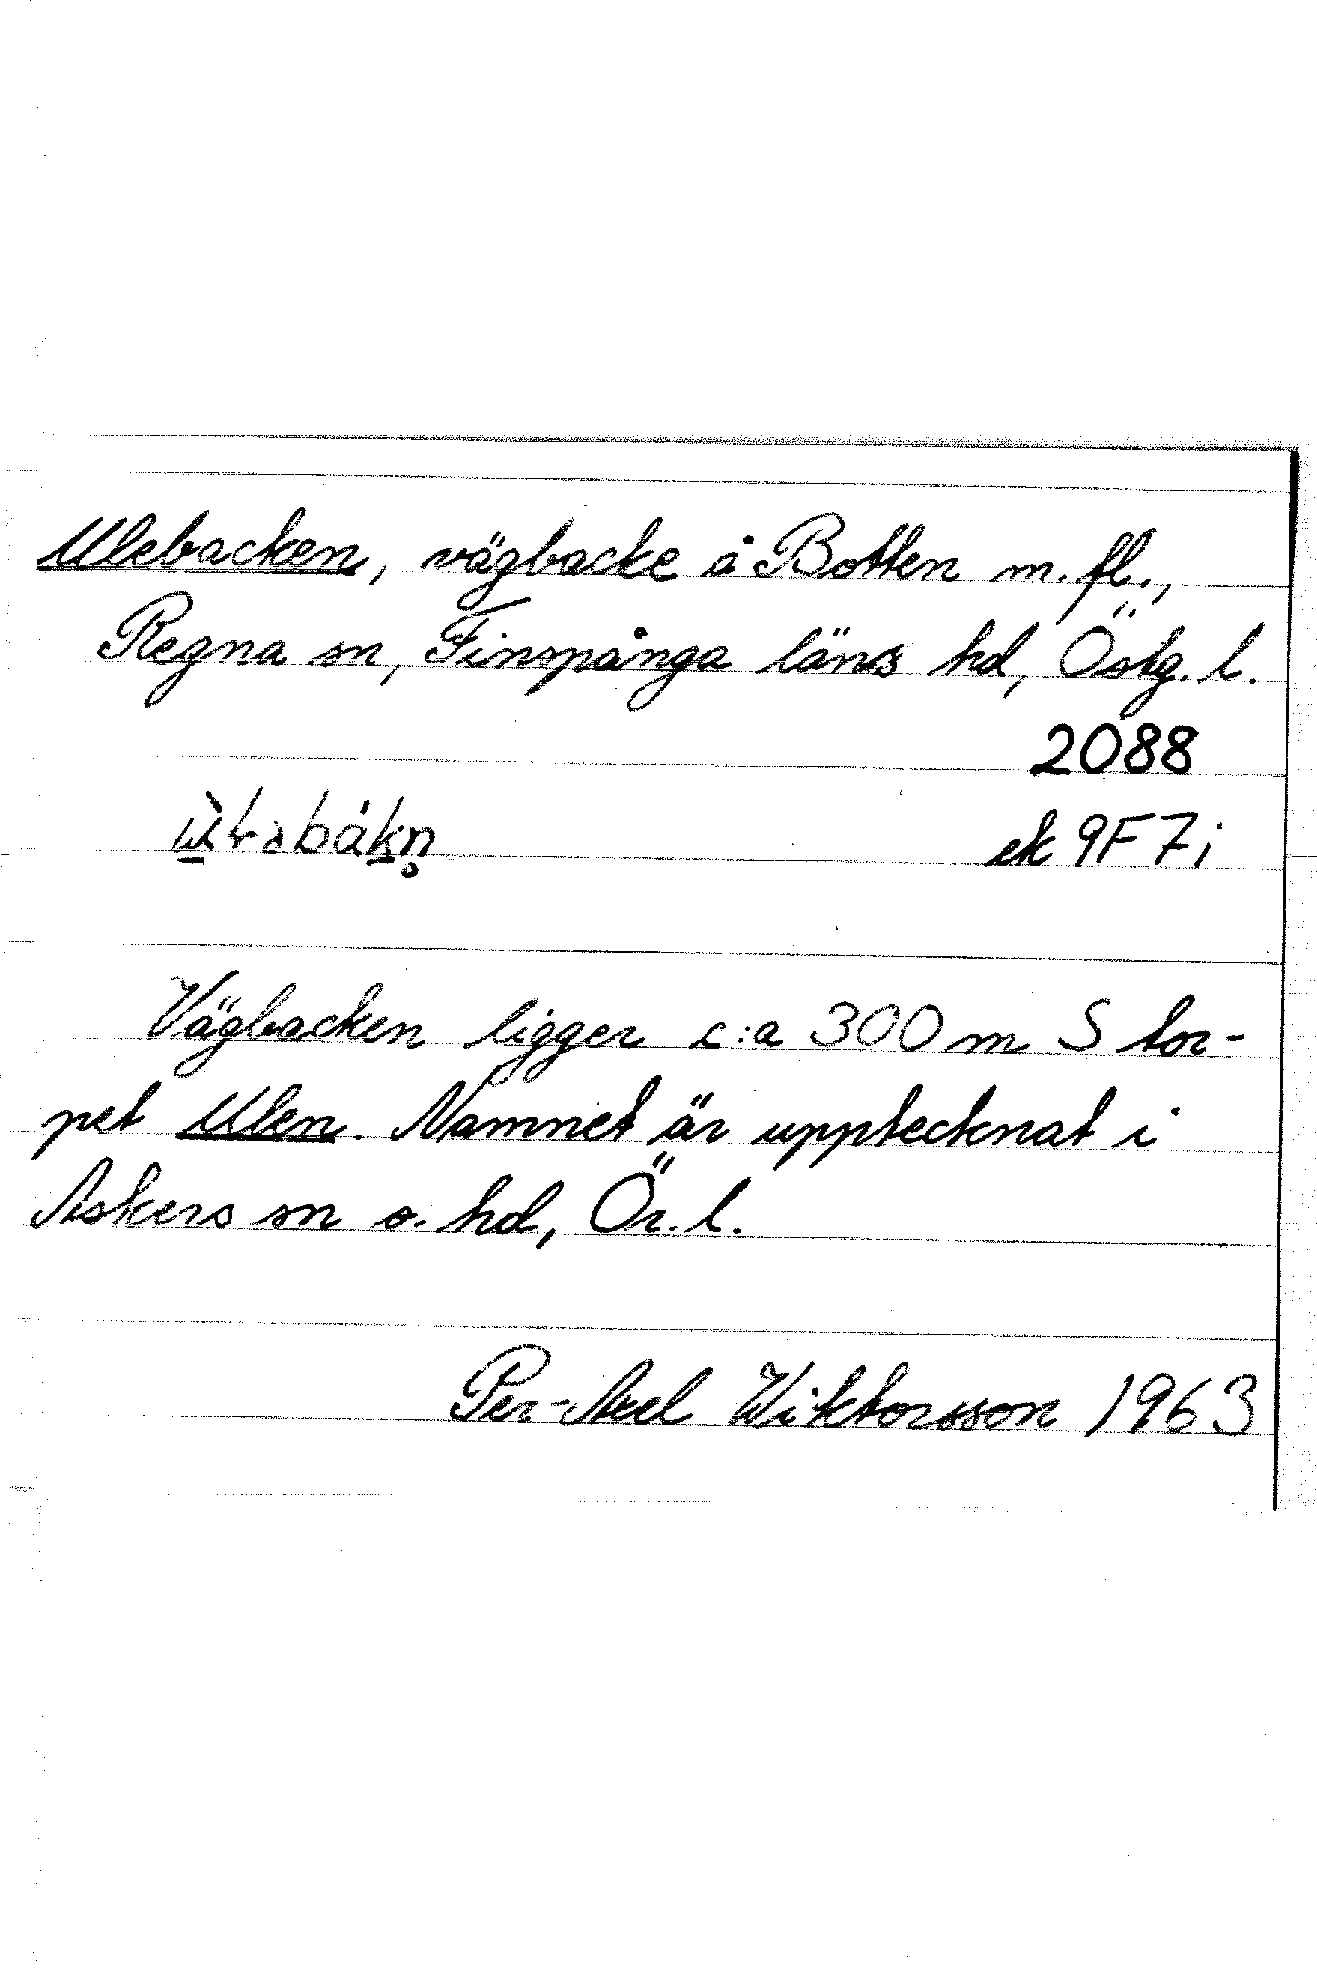 Ulebacken, vägbacke å Botten m. fl.,
Regna sn, Finspånga läns hd, Östg. l.
2088
ek 9F 7i
Vägbacken ligger c:a 300 m S tor-
pet Ulen. Namnet är upptecknat i
Askers sn o. hd, Ör. l.
Per-Axel Wiktorsson 1963